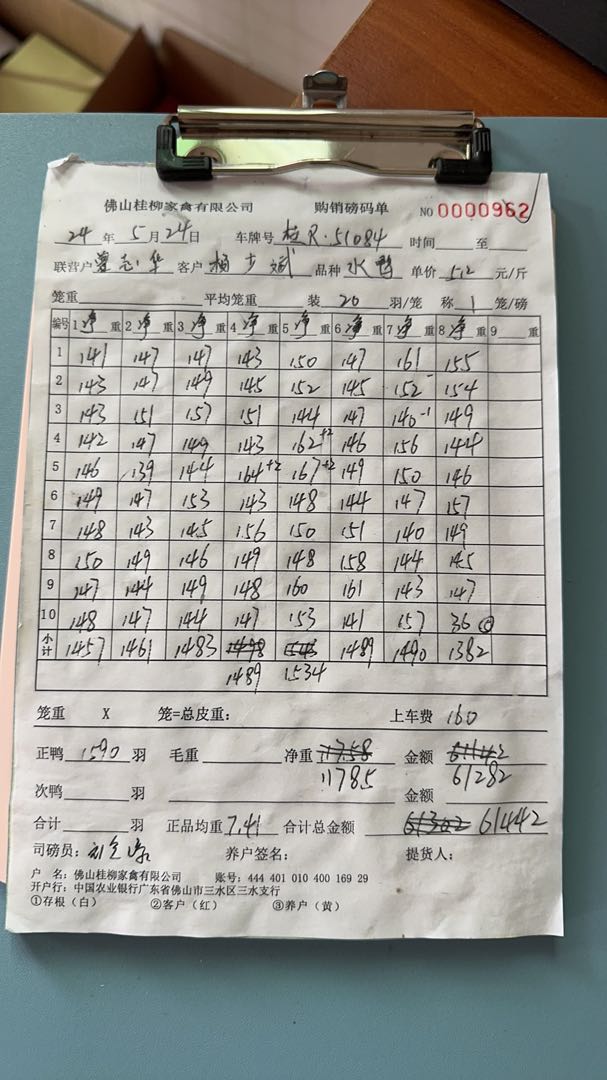 佛山桂柳家禽有限公司 购销磅码单 NO 0000962
24 年 5 月 24 日 车牌号 桂R·51084 时间 至
联营户 曾志华 客户 杨步斌 品种 水鸭 单价 5.2 元/斤
笼重 平均笼重 装 20 羽/笼 称 1 笼/磅
编号 1 净 重 2 净 重 3 净 重 4 净 重 5 净 重 6 净 重 7 净 重 8 净 重 9 重
1 141 147 147 143 150 147 161 155
2 143 147 149 145 152 145 152 154
3 143 151 157 151 144 147 140-1 149
4 142 147 149 143 162+2 146 156 144
5 146 139 144 164+2 167+2 149 150 146
6 149 147 153 143 148 144 147 157
7 148 143 145 156 150 151 140 149
8 150 149 146 149 148 158 144 145
9 147 144 149 148 160 161 143 147
10 148 147 144 147 153 141 157 36
小计 1457 1461 1483 1489 1490 1382
1489 1534
笼重 X 笼=总皮重： 上车费 160
正鸭 1590 羽 毛重 净重 11758 金额 61142
11785 61282
次鸭 羽 金额
合计 羽 正品均重 7.41 合计总金额 61302 61442
司磅员： 养户签名： 提货人：
户 名：佛山桂柳家禽有限公司 账号：444 401 010 400 169 29
开户行：中国农业银行广东省佛山市三水区三水支行
①存根（白） ②客户（红） ③养户（黄）